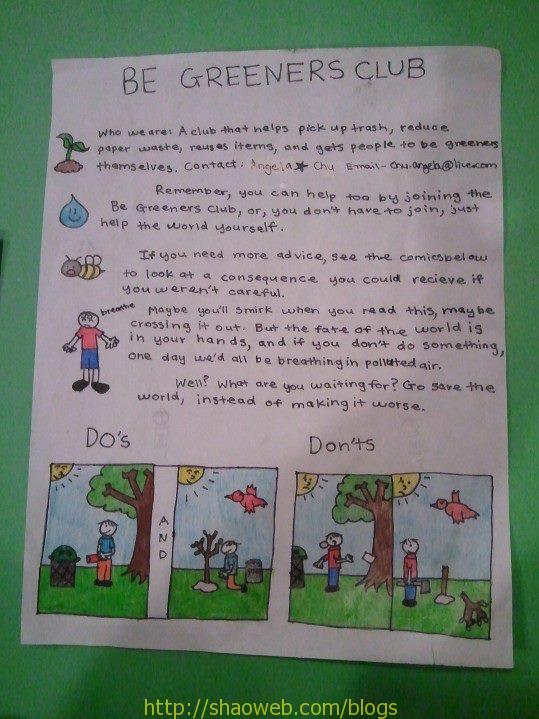 BE GREENERS CLUB
Who we are: A club that helps pick up trash, reduce
paper waste, reuses items, and gets people to be greeners
themselves. Contact: Angela Chu Email- chu.angela@live.com
Remember, you can help too by joining the
Be Greeners Club, or, you don't have to join, just
help the world yourself.
If you need more advice, see the comics below
to look at a consequence you could recieve if
you weren't careful.
breathe
Maybe you'll smirk when you read this, maybe
crossing it out. But the fate of the world is
in your hands, and if you don't do something,
one day we'd all be breathing in polluted air.
Well? What are you waiting for? Go save the
world, instead of making it worse.
DO's
Don'ts
AND
http://shaoweb.com/blogs